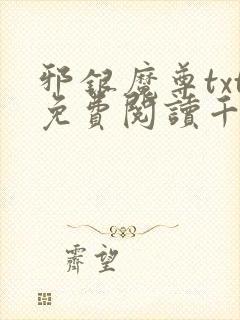 邪銀魔尊txt
免費閱讀千
霽望